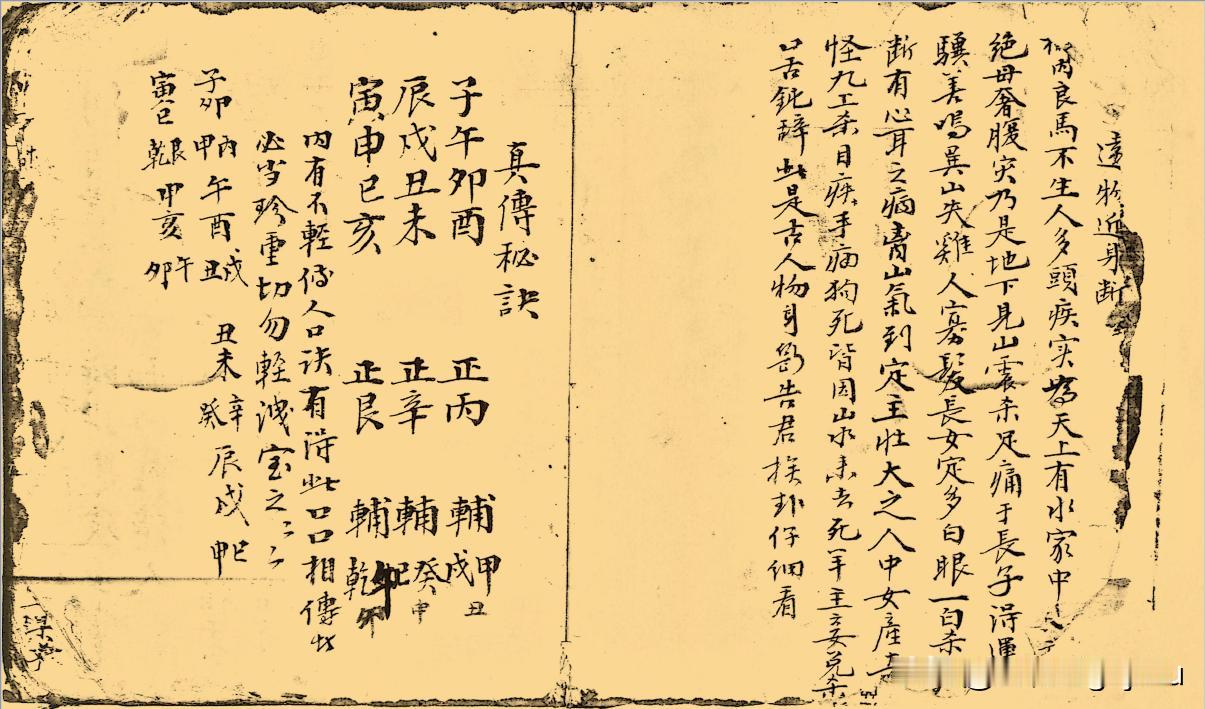 遠物近身断
良馬不生人多頭疾实為天上有水家中
絶母奢腹灾乃是地下見山震杀足痛于長子得運
驥善鳴巽山失雞人寡髮長女定多白眼一白杀
断有心耳之病青山氣到定主壮大之人中女產
怪九工杀目疾手病狗死皆因山水未去死羊主妾兑杀
口舌鈍辞此是古人物身訣告君挨卦仔細看
真傳秘訣
子午卯酉 正丙 輔甲戌丑
辰戌丑未 正辛 輔癸巳申
寅申巳亥 正艮 輔乾午卯
内有不輕傳人口訣有得此口口相傳故
必当珍重切勿輕洩宝之
子卯 丙甲 午酉 戌丑 丑未 辛癸 辰戌 巳申
寅巳 艮乾 申亥 午卯